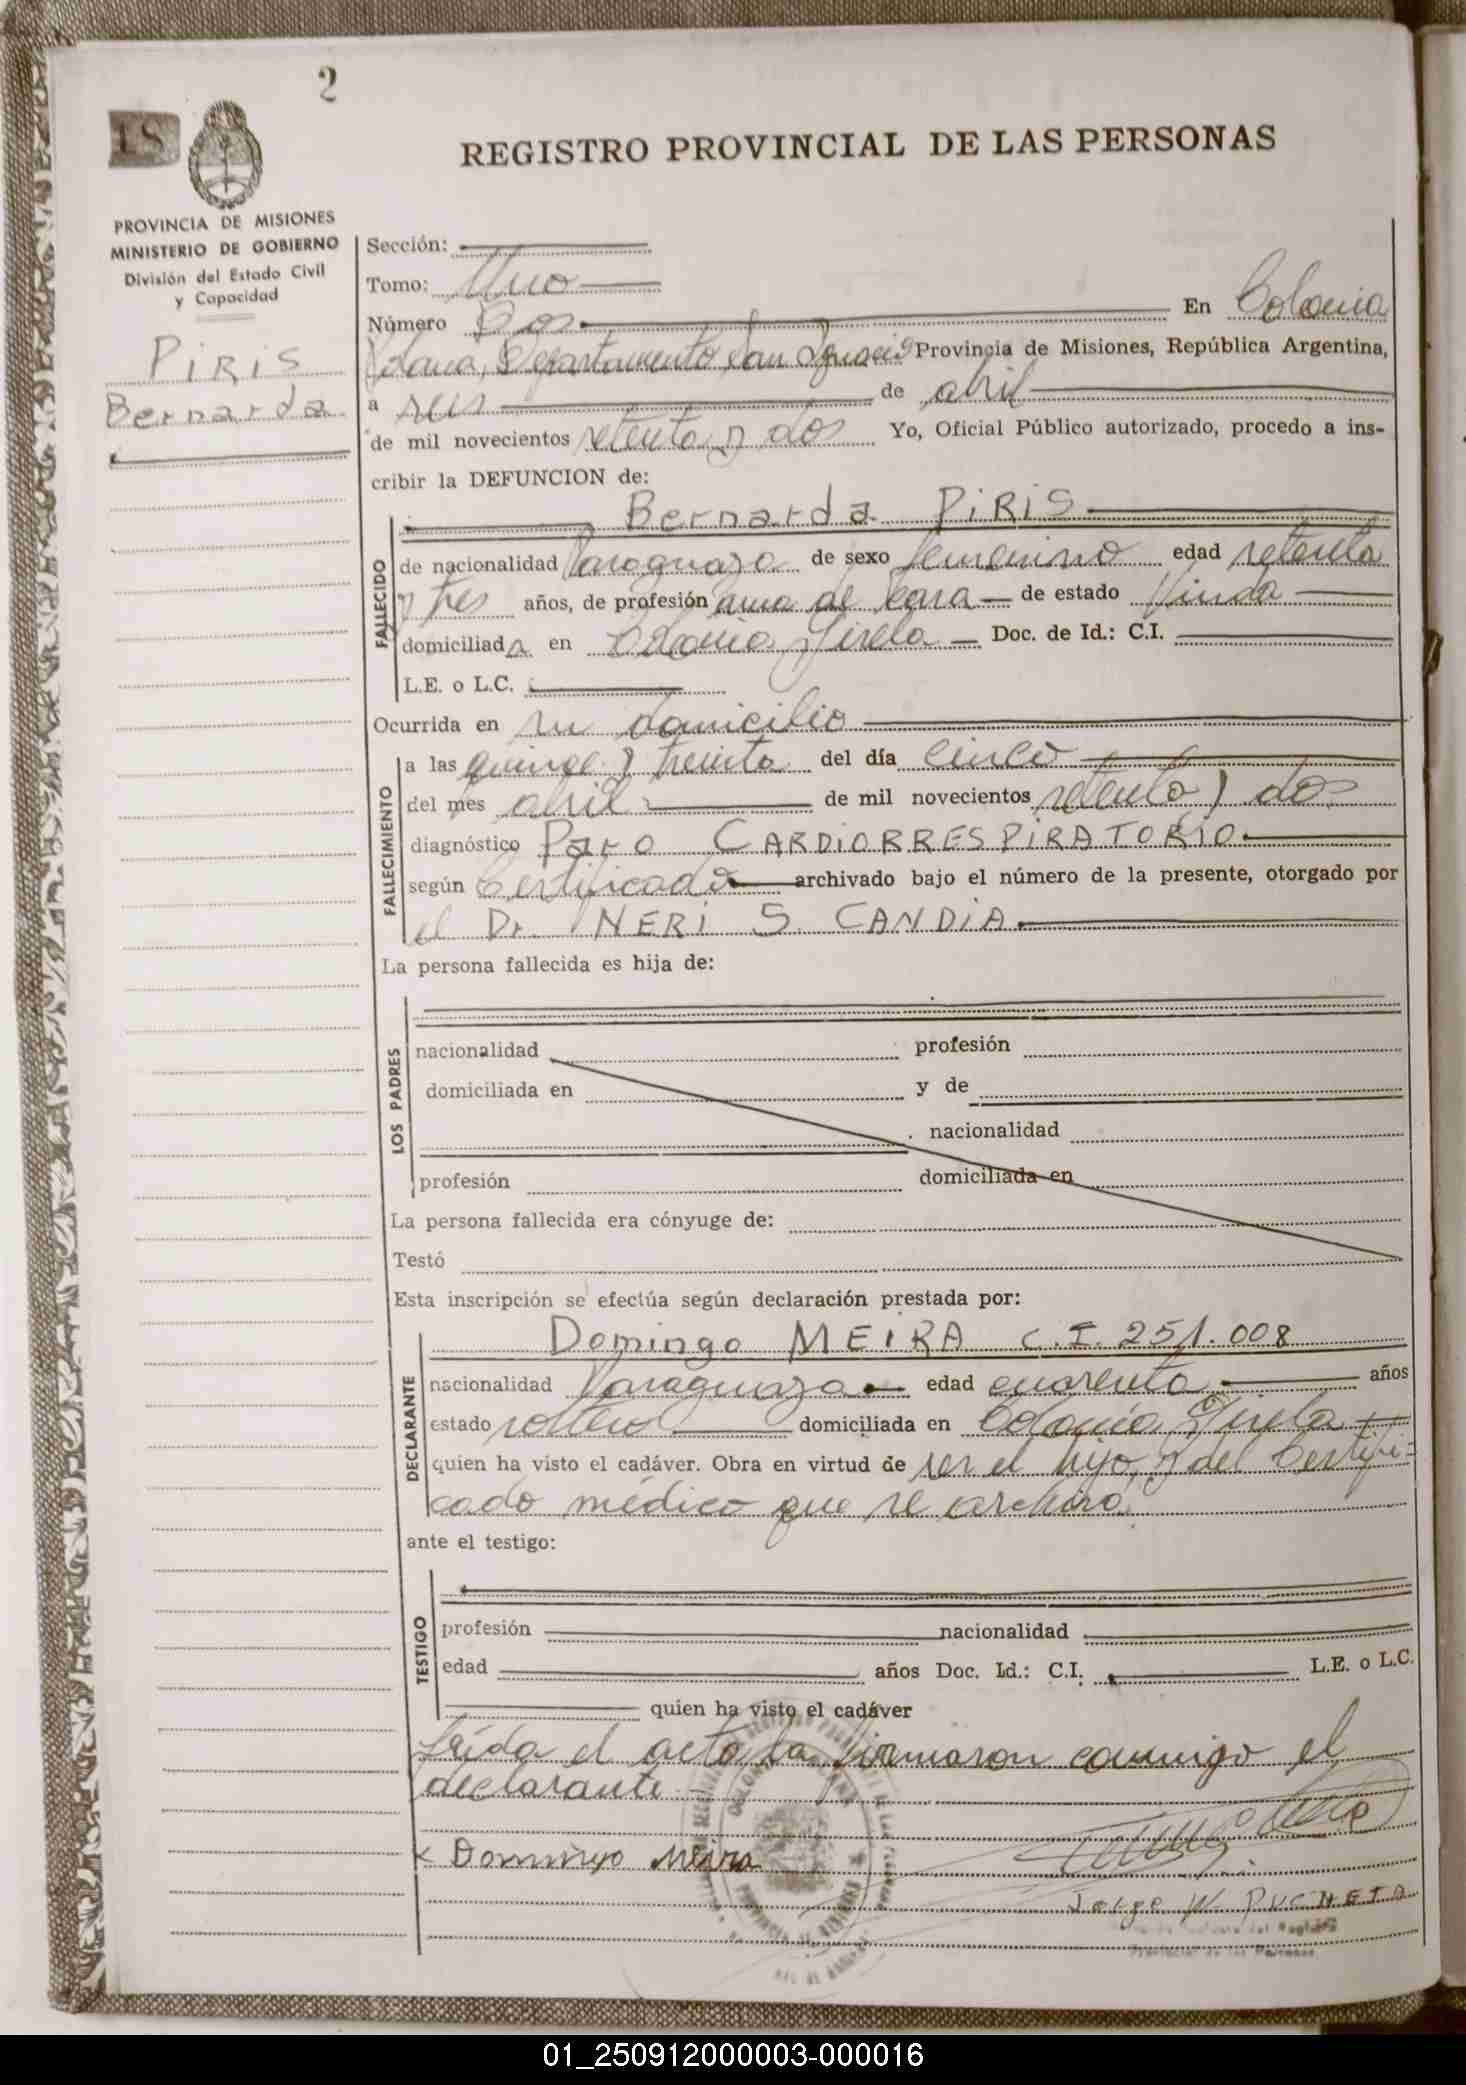 2
18
REGISTRO PROVINCIAL DE LAS PERSONAS
PROVINCIA DE MISIONES
MINISTERIO DE GOBIERNO
División del Estado Civil
y Capacidad
PIRIS
Bernarda
Sección:
Tomo: Uno
Número Dos En Colonia
Polana, Departamento San Ignacio Provincia de Misiones, República Argentina,
a seis de abril
de mil novecientos setenta y dos Yo, Oficial Público autorizado, procedo a ins-
cribir la DEFUNCION de:
Bernarda PIRIS
FALLECIDO
de nacionalidad Paraguaya de sexo femenino edad setenta
y tres años, de profesión ama de casa de estado Viuda
domiciliada en Colonia Gisela Doc. de Id.: C.I.
L.E. o L.C.
Ocurrida en su domicilio
FALLECIMIENTO
a las quince y treinta del día cinco
del mes abril de mil novecientos setenta y dos
diagnóstico Paro CARDIORRESPIRATORIO
según Certificado archivado bajo el número de la presente, otorgado por
el Dr. NERI S. CANDIA
La persona fallecida es hija de:
LOS PADRES
nacionalidad profesión
domiciliada en y de
nacionalidad
profesión domiciliada en
La persona fallecida era cónyuge de:
Testó
Esta inscripción se efectúa según declaración prestada por:
DECLARANTE
Domingo MEIRA C.I. 251.008
nacionalidad Paraguaya edad cuarenta años
estado soltero domiciliada en Colonia Gisela
quien ha visto el cadáver. Obra en virtud de ser el hijo, y del Certifi-
cado médico que se archiva.
ante el testigo:
TESTIGO
profesión nacionalidad
edad años Doc. Id.: C.I. L.E. o L.C.
quien ha visto el cadáver
Leída el acta la firmaron conmigo el
declarante
x Domingo Meira
Jorge W.
01_250912000003-000016